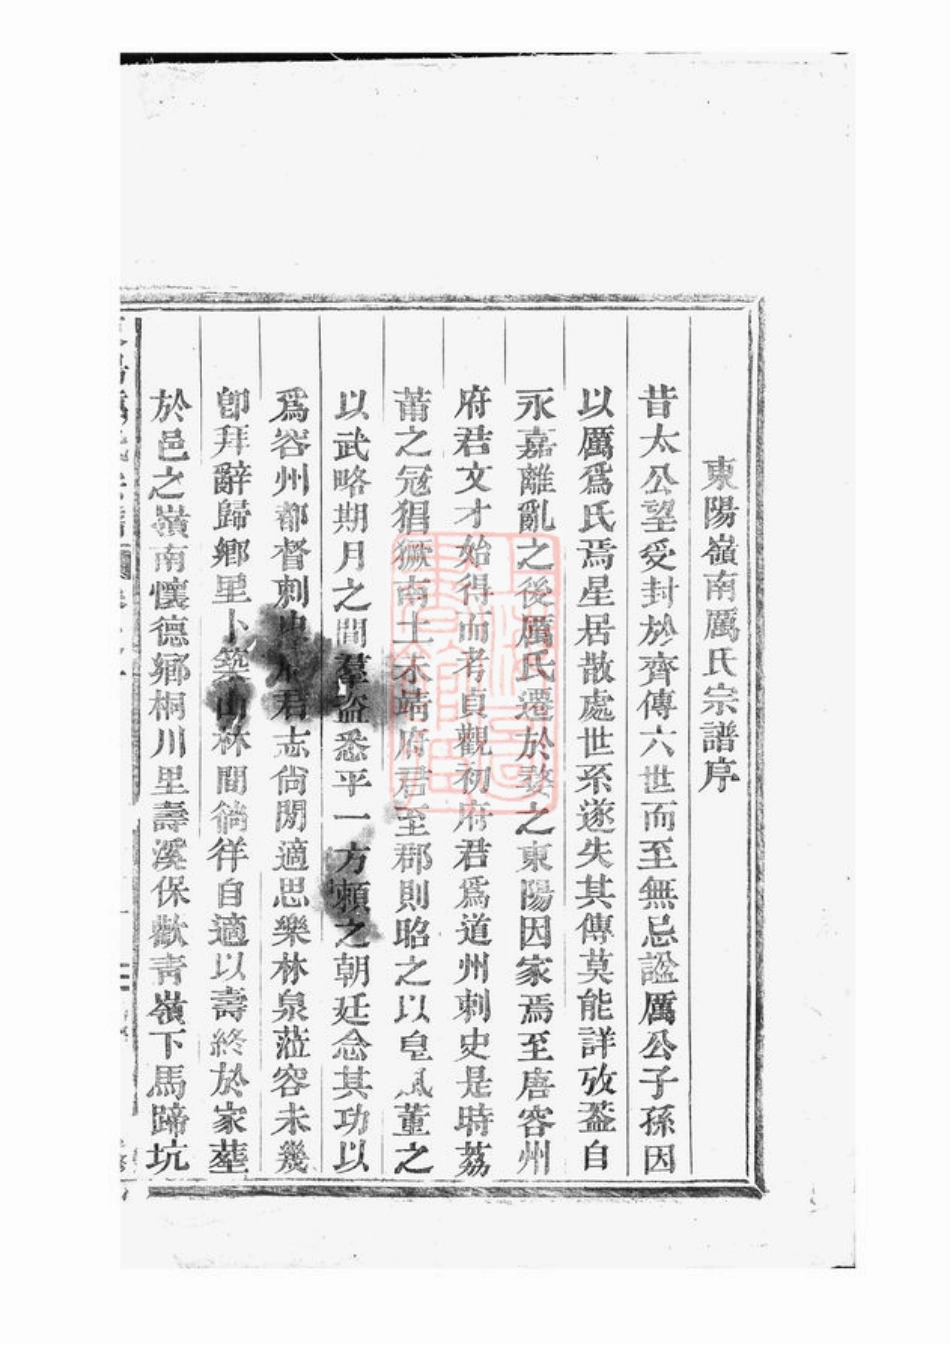 東陽嶺南厲氏宗譜序
昔太公望受封於齊傳六世而至無忌諡厲公子孫因
以厲爲氏焉星居散處世系遂失其傳莫能詳攷蓋自
永嘉離亂之後厲氏遷於婺之東陽因家焉至唐容州
府君文才始得而考貞觀初府君爲道州刺史是時荔
莆之冦猖獗南土未靖府君至郡則昭之以皀風董之
以武略期月之間羣盜悉平一方賴之朝廷念其功以
爲容州都督刺史府君志尙閒適思樂林泉蒞容未幾
卽拜辭歸鄉里卜築山林間徜徉自適以壽終於家塟
於邑之嶺南懷德鄉桐川里壽溪保歡靑嶺下馬蹄坑